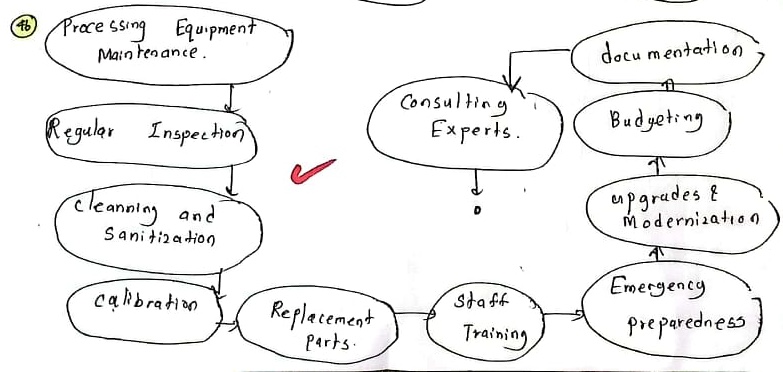 4b
Processing Equipment
Maintenance.
Regular Inspection
Cleanning and
Sanitization
Calibration
Replacement
Parts.
Staff
Training
Emergency
preparedness
upgrades &
Modernization
Budgeting
documentation
Consulting
Experts.